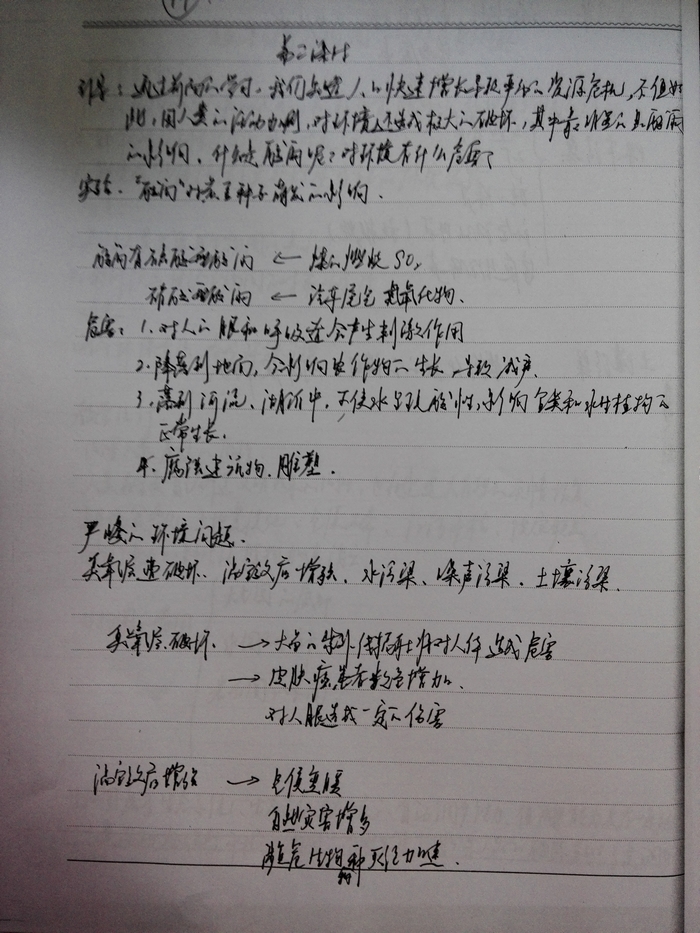 第二课时
引导：通过前面的学习，我们知道人口快速增长导致严重的资源危机，不但如
此，因人类的活动力剧，对环境还造成极大的破坏，其中最明显的是酸雨
的影响，什么是酸雨呢？对环境有什么危害？
实验．"酸雨"对小麦种子萌发的影响．
酸雨有硫酸型酸雨 ← 煤的燃烧 SO₂
硝酸型酸雨 ← 汽车尾气 氮氧化物．
危害：1．对人的眼和呼吸道会产生刺激作用
2．降落到地面，会影响农作物的生长，导致减产．
3．落到河流、湖泊中，不使水呈现酸性，影响鱼类和水生植物的
正常生长．
4．腐蚀建筑物、雕塑．
严峻的环境问题．
臭氧层遭破坏、温室效应增强、水污染、噪声污染、土壤污染．
臭氧层破坏．→ 大量的紫外线 将对人体造成危害
→ 皮肤癌患者数量增加．
对人眼造成一定的伤害
温室效应增强 → 气候变暖
自然灾害增多
濒危生物种灭绝加速．
物